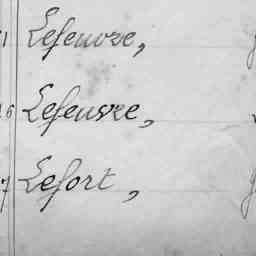 Lefeuvre,
Lefeuvre,
Lefort,